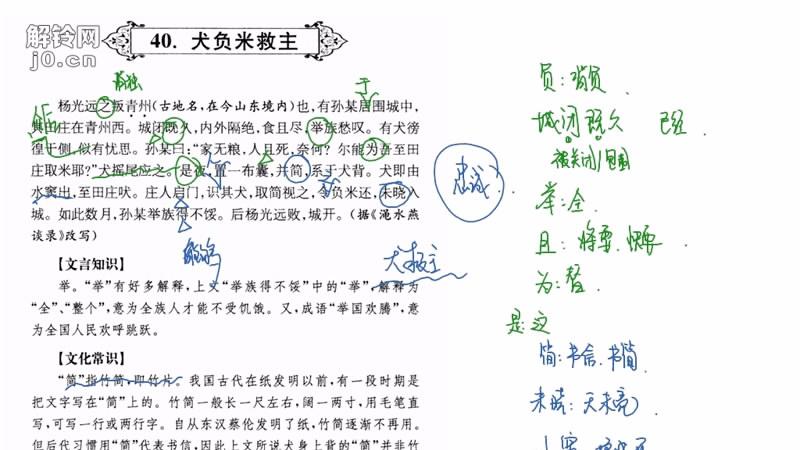 解铃网
j0.cn
40. 犬负米救主
杨光远之叛青州(古地名,在今山东境内)也,有孙某居围城中,
其田庄在青州西。城闭既久,内外隔绝,食且尽,举族愁叹。有犬徬
徨于侧,似有忧思。孙某曰:“家无粮,人且死,奈何?尔能为吾至田
庄取米耶?”犬摇尾应之。是夜,置一布囊,并简,系于犬背。犬即由
水窦出,至田庄吠。庄人启门,识其犬,取简视之,令负米还,未晓入
城。如此数月,孙某举族得不馁。后杨光远败,城开。(据《渑水燕
谈录》改写)
【文言知识】
举。“举”有好多解释,上文“举族得不馁”中的“举”,解释为
“全”、“整个”,意为全族人才能不受饥饿。又,成语“举国欢腾”,意
为全国人民欢呼跳跃。
【文化常识】
“简”指竹简,即竹片。我国古代在纸发明以前,有一段时期是
把文字写在“简”上的。竹简一般长一尺左右,阔一两寸,用毛笔直
写,可写一行或两行字。自从东汉蔡伦发明了纸,竹简逐渐不再用。
但后代习惯用“简”代表书信,因此上文所说犬身上背的“简”并非竹
于
忠诚
犬救主
负:背负
城闭既久 已经
被关闭/包围
举:全
且:将要,快要
为:替
是:这
简:书信,书简
未晓:天未亮